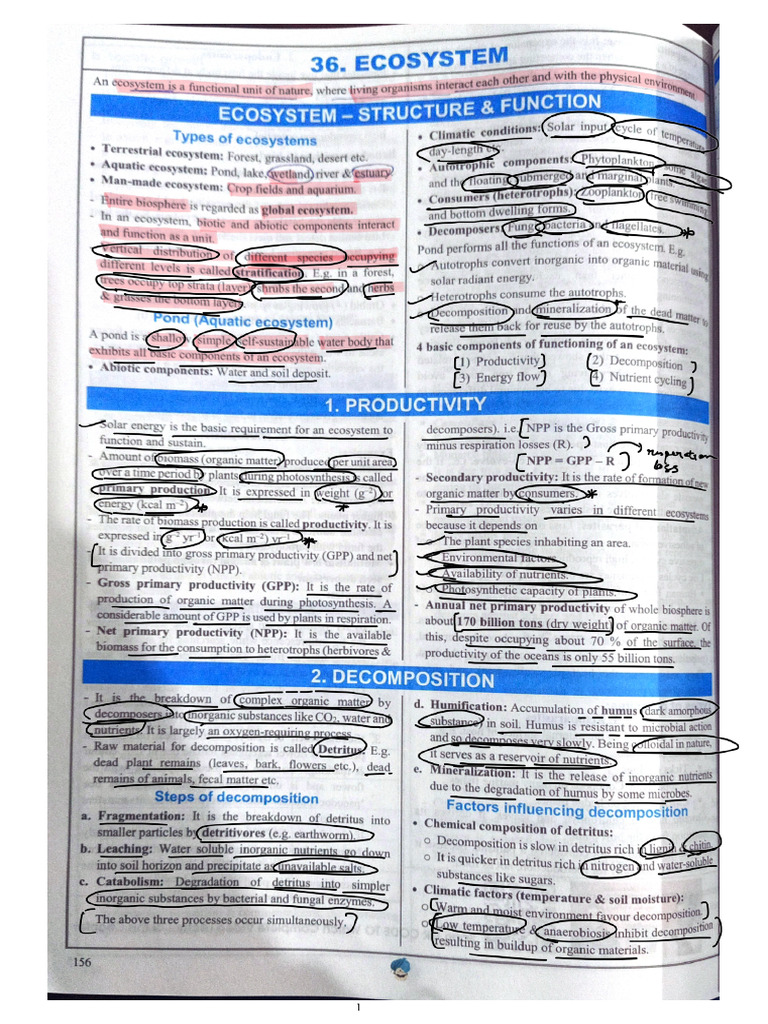 36. ECOSYSTEM
An ecosystem is a functional unit of nature, where living organisms interact each other and with the physical environment.
ECOSYSTEM – STRUCTURE & FUNCTION
Types of ecosystems
• Terrestrial ecosystem: Forest, grassland, desert etc.
• Aquatic ecosystem: Pond, lake, wetland, river & estuary.
• Man-made ecosystem: Crop fields and aquarium.
- Entire biosphere is regarded as global ecosystem.
- In an ecosystem, biotic and abiotic components interact
and function as a unit.
- Vertical distribution of different species occupying
different levels is called stratification. E.g. in a forest,
trees occupy top strata (layer), shrubs the second and herbs
& grasses the bottom layer.
Pond (Aquatic ecosystem)
A pond is a shallow, simple, self-sustainable water body that
exhibits all basic components of an ecosystem.
• Abiotic components: Water and soil deposit.
• Climatic conditions: Solar input, cycle of temperature,
day-length etc.
• Autotrophic components: Phytoplankton, some algae
and the floating, submerged and marginal plants.
• Consumers (heterotrophs): Zooplankton, free swimming
and bottom dwelling forms.
• Decomposers: Fungi, bacteria and flagellates. *
Pond performs all the functions of an ecosystem. E.g.
Autotrophs convert inorganic into organic material using
solar radiant energy.
o Heterotrophs consume the autotrophs.
Decomposition and mineralization of the dead matter to
release them back for reuse by the autotrophs.
4 basic components of functioning of an ecosystem:
1) Productivity 2) Decomposition
3) Energy flow 4) Nutrient cycling
1. PRODUCTIVITY
- Solar energy is the basic requirement for an ecosystem to
function and sustain.
- Amount of biomass (organic matter) produced per unit area
over a time period by plants during photosynthesis is called
primary production. It is expressed in weight (g⁻²) or
energy (kcal m⁻²).
- The rate of biomass production is called productivity. It is
expressed in g⁻² yr⁻¹ or (kcal m⁻²) yr⁻¹. *
It is divided into gross primary productivity (GPP) and net
primary productivity (NPP).
- Gross primary productivity (GPP): It is the rate of
production of organic matter during photosynthesis. A
considerable amount of GPP is used by plants in respiration.
- Net primary productivity (NPP): It is the available
biomass for the consumption to heterotrophs (herbivores &
decomposers). i.e. NPP is the Gross primary productivity
minus respiration losses (R).
NPP = GPP – R
respiration loss
- Secondary productivity: It is the rate of formation of new
organic matter by consumers. *
- Primary productivity varies in different ecosystems
because it depends on
The plant species inhabiting an area.
Environmental factors.
Availability of nutrients.
o Photosynthetic capacity of plants.
- Annual net primary productivity of whole biosphere is
about 170 billion tons (dry weight) of organic matter. Of
this, despite occupying about 70 % of the surface, the
productivity of the oceans is only 55 billion tons.
2. DECOMPOSITION
- It is the breakdown of complex organic matter by
decomposers into inorganic substances like CO₂, water and
nutrients. It is largely an oxygen-requiring process.
- Raw material for decomposition is called Detritus. E.g.
dead plant remains (leaves, bark, flowers etc.), dead
remains of animals, fecal matter etc.
Steps of decomposition
a. Fragmentation: It is the breakdown of detritus into
smaller particles by detritivores (e.g. earthworm).
b. Leaching: Water soluble inorganic nutrients go down
into soil horizon and precipitate as unavailable salts.
c. Catabolism: Degradation of detritus into simpler
inorganic substances by bacterial and fungal enzymes.
The above three processes occur simultaneously.
d. Humification: Accumulation of humus (dark amorphous
substance) in soil. Humus is resistant to microbial action
and so decomposes very slowly. Being colloidal in nature,
it serves as a reservoir of nutrients.
e. Mineralization: It is the release of inorganic nutrients
due to the degradation of humus by some microbes.
Factors influencing decomposition
• Chemical composition of detritus:
o Decomposition is slow in detritus rich in lignin & chitin.
o It is quicker in detritus rich in nitrogen and water-soluble
substances like sugars.
• Climatic factors (temperature & soil moisture):
o Warm and moist environment favour decomposition.
o Low temperature & anaerobiosis inhibit decomposition
resulting in buildup of organic materials.
156
1